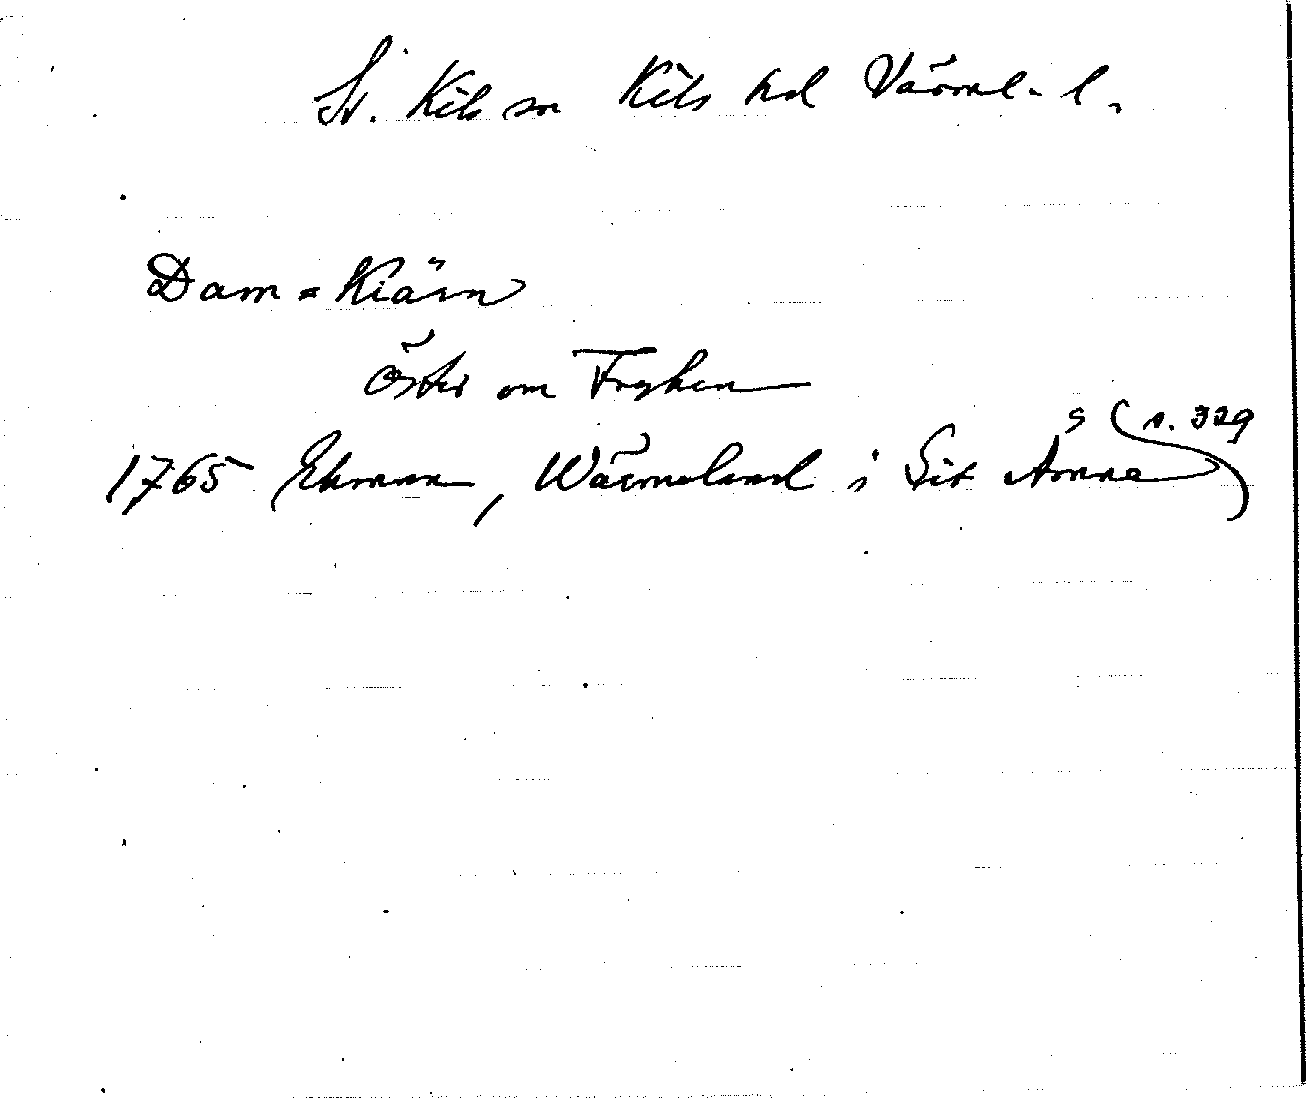 St. Kils sn Kils hd Värml. l.
Dam=Kiärn
Öster om Fryken
1765 Ekman, Wärmeland i Sit Ämne (s. 329)